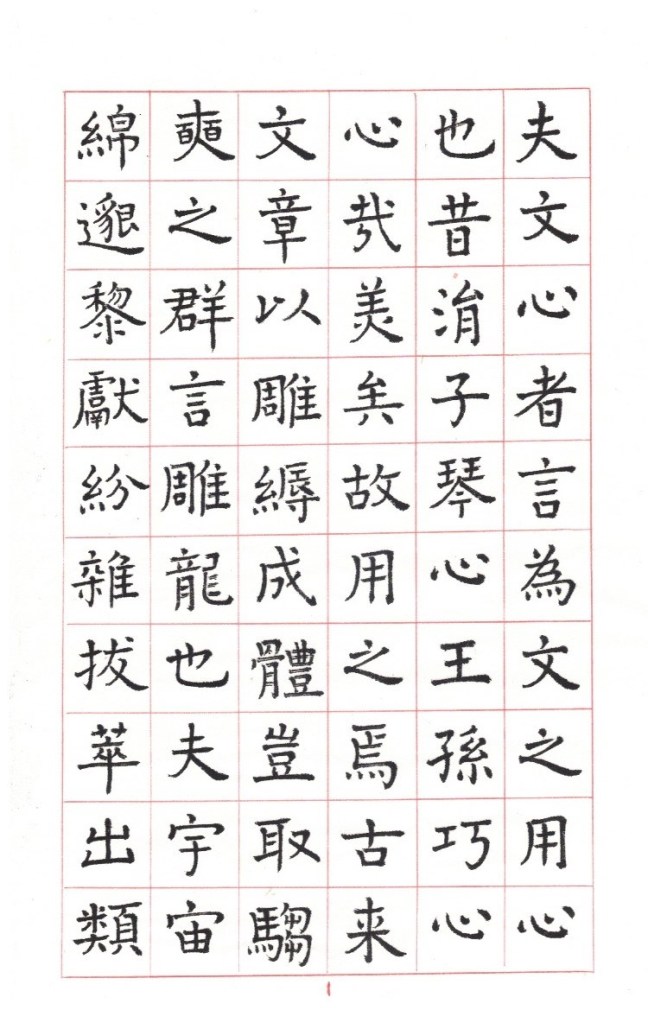 夫文心者言為文之用心
也昔涓子琴心王孫巧心
心哉美矣故用之焉古来
文章以雕縟成體豈取騶
奭之群言雕龍也夫宇宙
綿邈黎獻紛雜拔萃出類
1